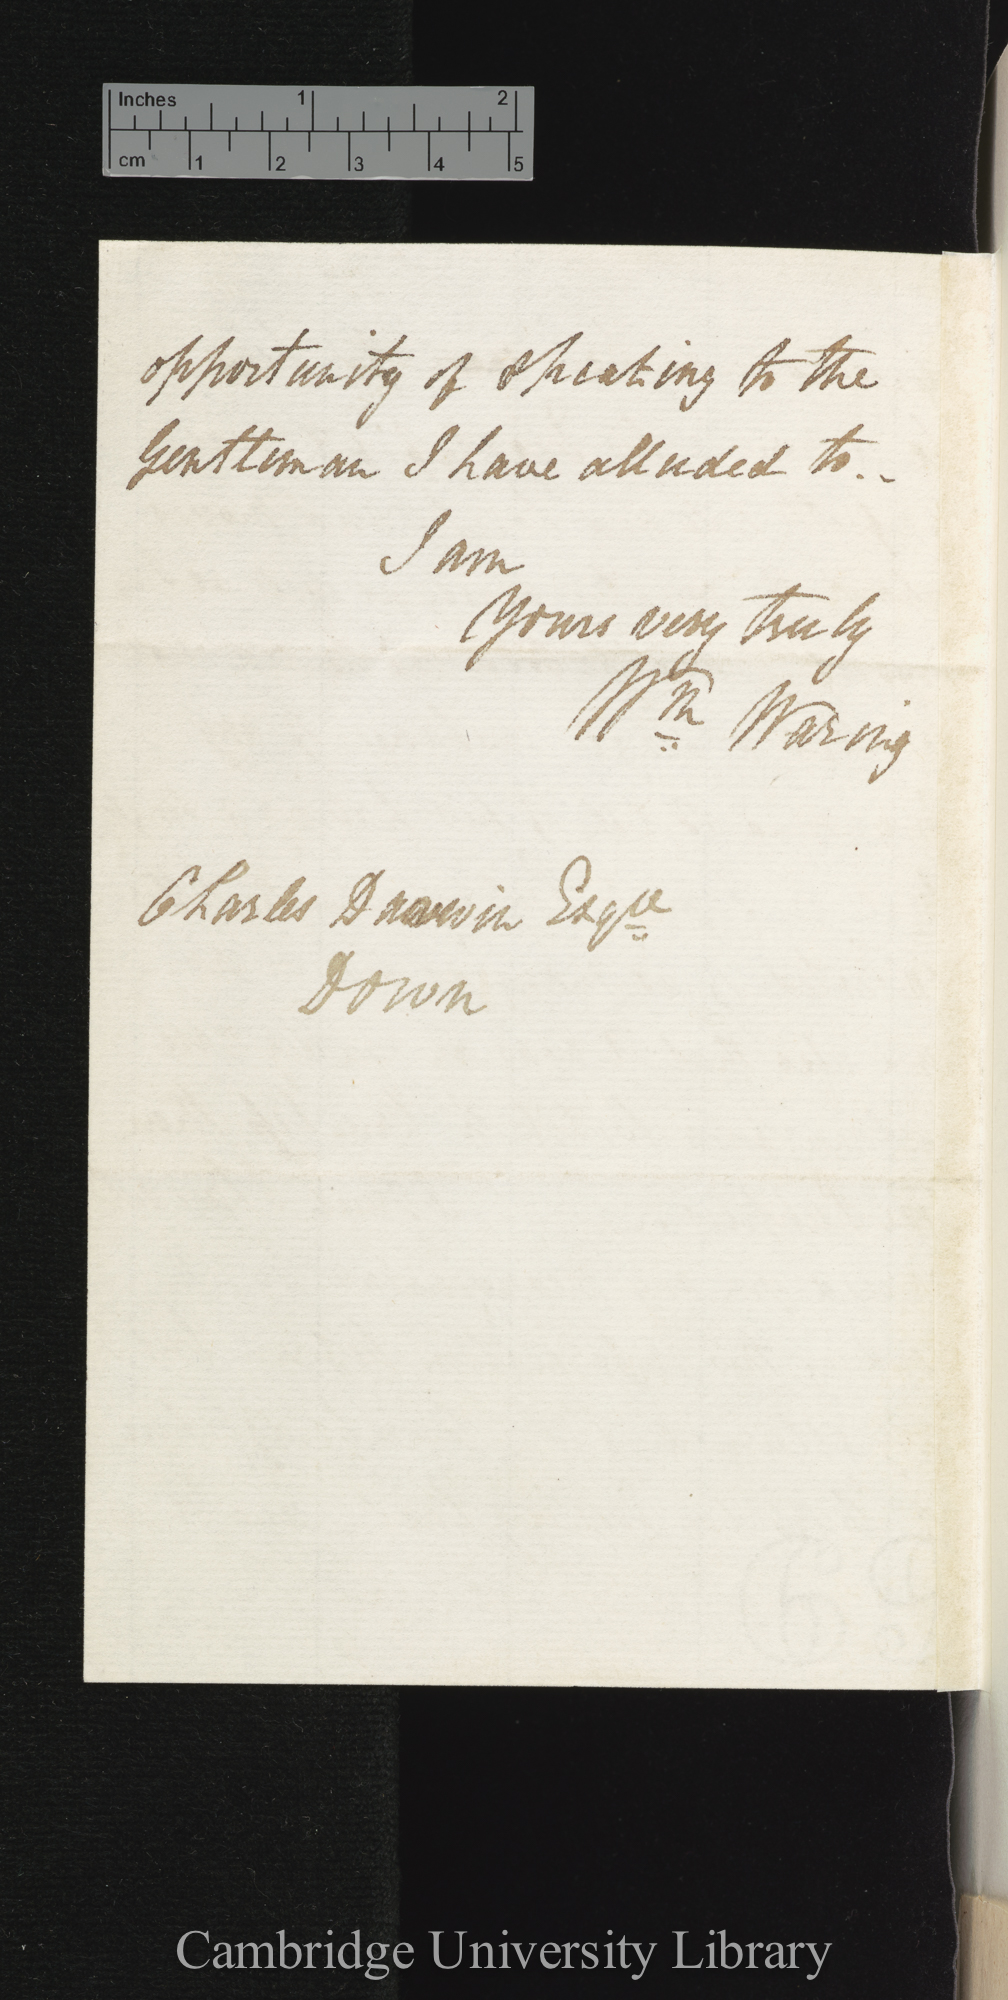 Inches 1 2
cm 1 2 3 4 5
opportunity of speaking to the
Gentleman I have alluded to..
I am
Yours very truly
Wm Waring
Charles Darwin Esqre
Down
Cambridge University Library